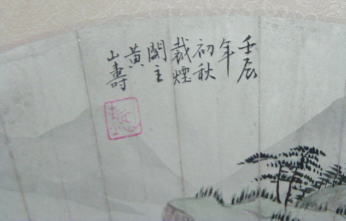 壬辰
年
初秋
裁煙
閣主
黄
山壽